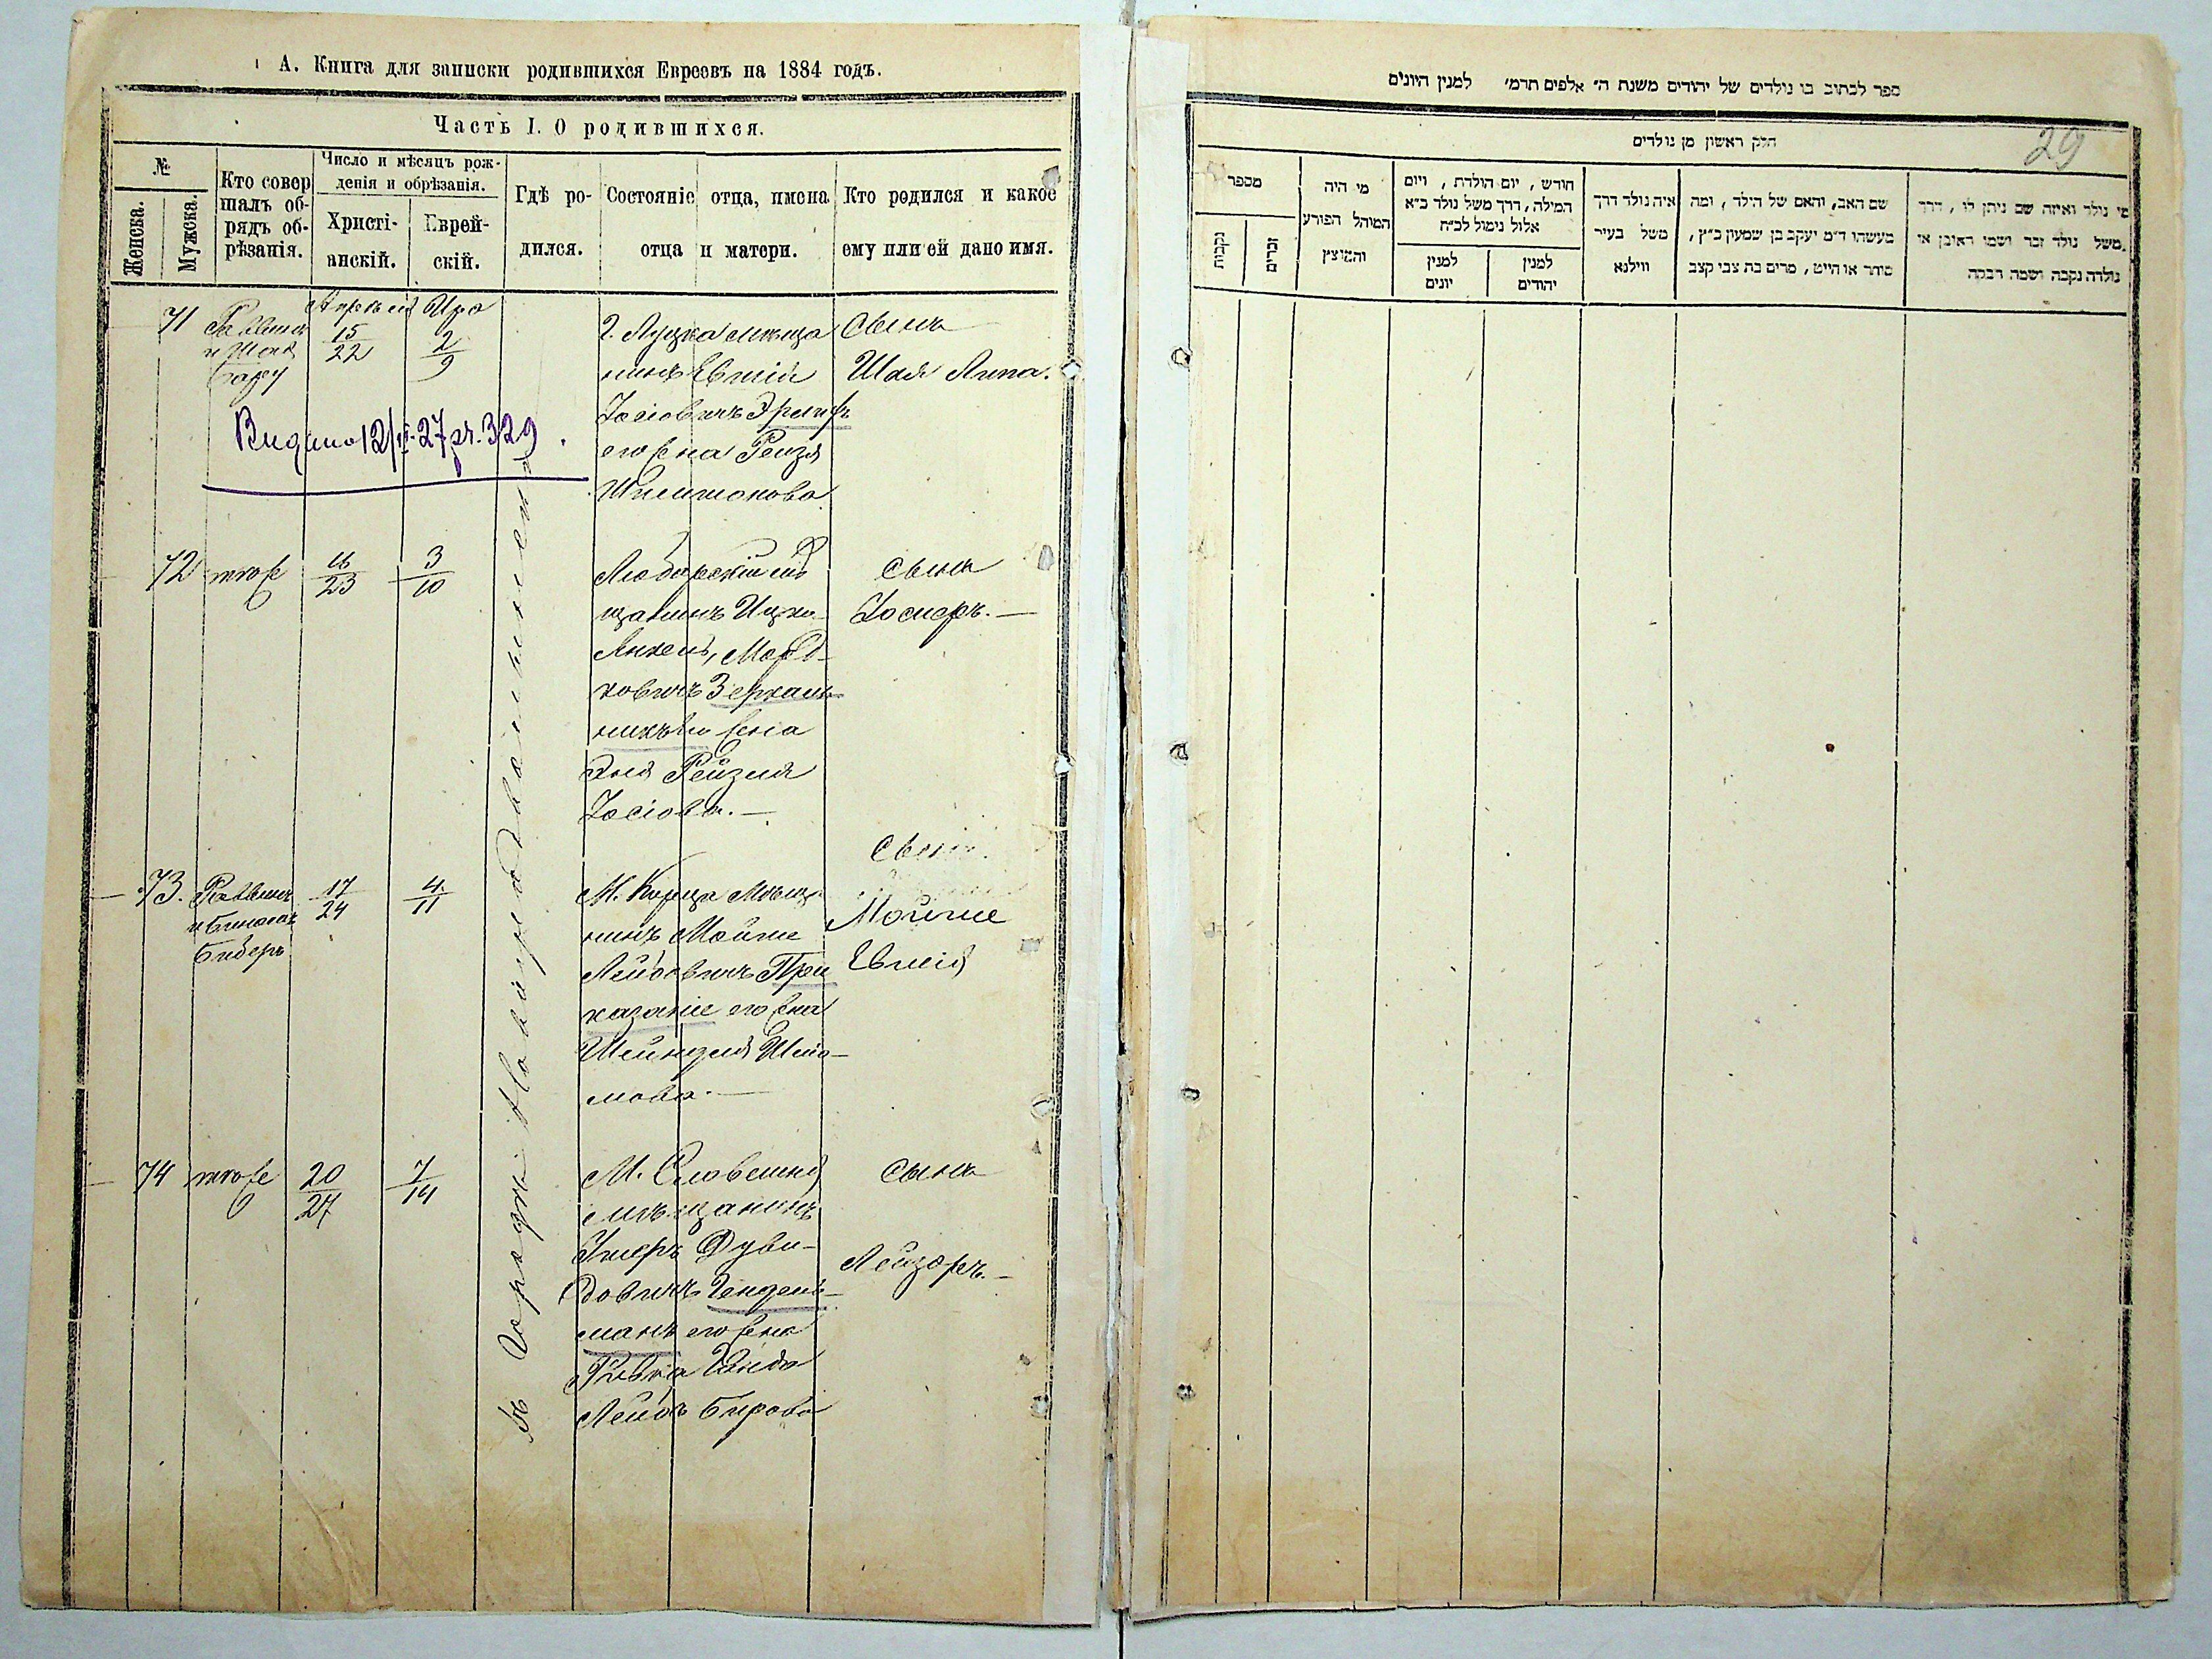 А. Книга для записки родившихся Евреевъ на 1884 годъ.
Часть I. О родившихся.
№
Женска.
Мужска.
Кто совер
шалъ об-
рядъ об-
рѣзанія.
Число и мѣсяцъ рож-
денія и обрѣзанія.
Христі-
анскій.
Еврей-
скій.
Гдѣ ро-
дился.
Состояніе отца, имена
отца и матери.
Кто родился и какое
ему или ей дано имя.
71
Раввинъ
и
Апрѣля
15
22
Ира
2
9
Г. Луцка мѣща
нинъ Евшія
Іосіовичъ
его жена Рейзя
Сынъ
Шая Липа.
Видано 12/ 27 р. 329.
72
тоже
16
23
3
10
Любарскій мѣ
щанинъ Ицко
Янкель,Морд-
ковичъ Зеркаль
никъ его жена
Хня Рейзля
Іосіова.
Сынъ
Іосифъ.
73.
Раввинъ
и
Биберъ
17
24
4
11
М. Корца мѣща
нинъ Мойше
Лейбовичъ При
казаніе его жена
Шейндля Шло-
мова.
Сынъ.
Мойше
Евшія
74
тоже
20
27
7
14
М. Словешня
мѣщанинъ
Ушеръ Дуви-
довичъ Гендель-
манъ его жена
Ривка
Лейбъ Берова
Сынъ
Лейзоръ.
въ Городѣ Новоградволынскѣ
ספר לכתוב בו נולדים של יהודים משנת ה׳ אלפים תרמ׳ למנין היונים
29
חלק ראשון מן נולדים
מספר
נקבות
זכרים
מי היה
המוהל הפורע
והמוצץ
חודש, יום הולדת, ויום
המילה, דרך משל נולד כ״א
אלול נימול לכ״ח
למנין
יונים
למנין
יהודים
איה נולד דרך
משל בעיר
ווילנא
שם האב, והאם של הילד, ומה
מעשהו ד״מ יעקב בן שמעון כ״ץ,
סוחר או חייט, מרים בת צבי קצב
מי נולד ואיזה שם ניתן לו, דרך
משל נולד זכר ושמו ראובן או
נולדה נקבה ושמה רבקה